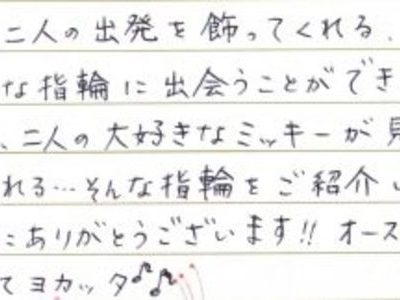 二人の出発を飾ってくれる、
な指輪に出会うことができ
、二人の大好きなミッキーが見
れる…そんな指輪をご紹介い
にありがとうございます!! オース
てヨカッタ♪♪